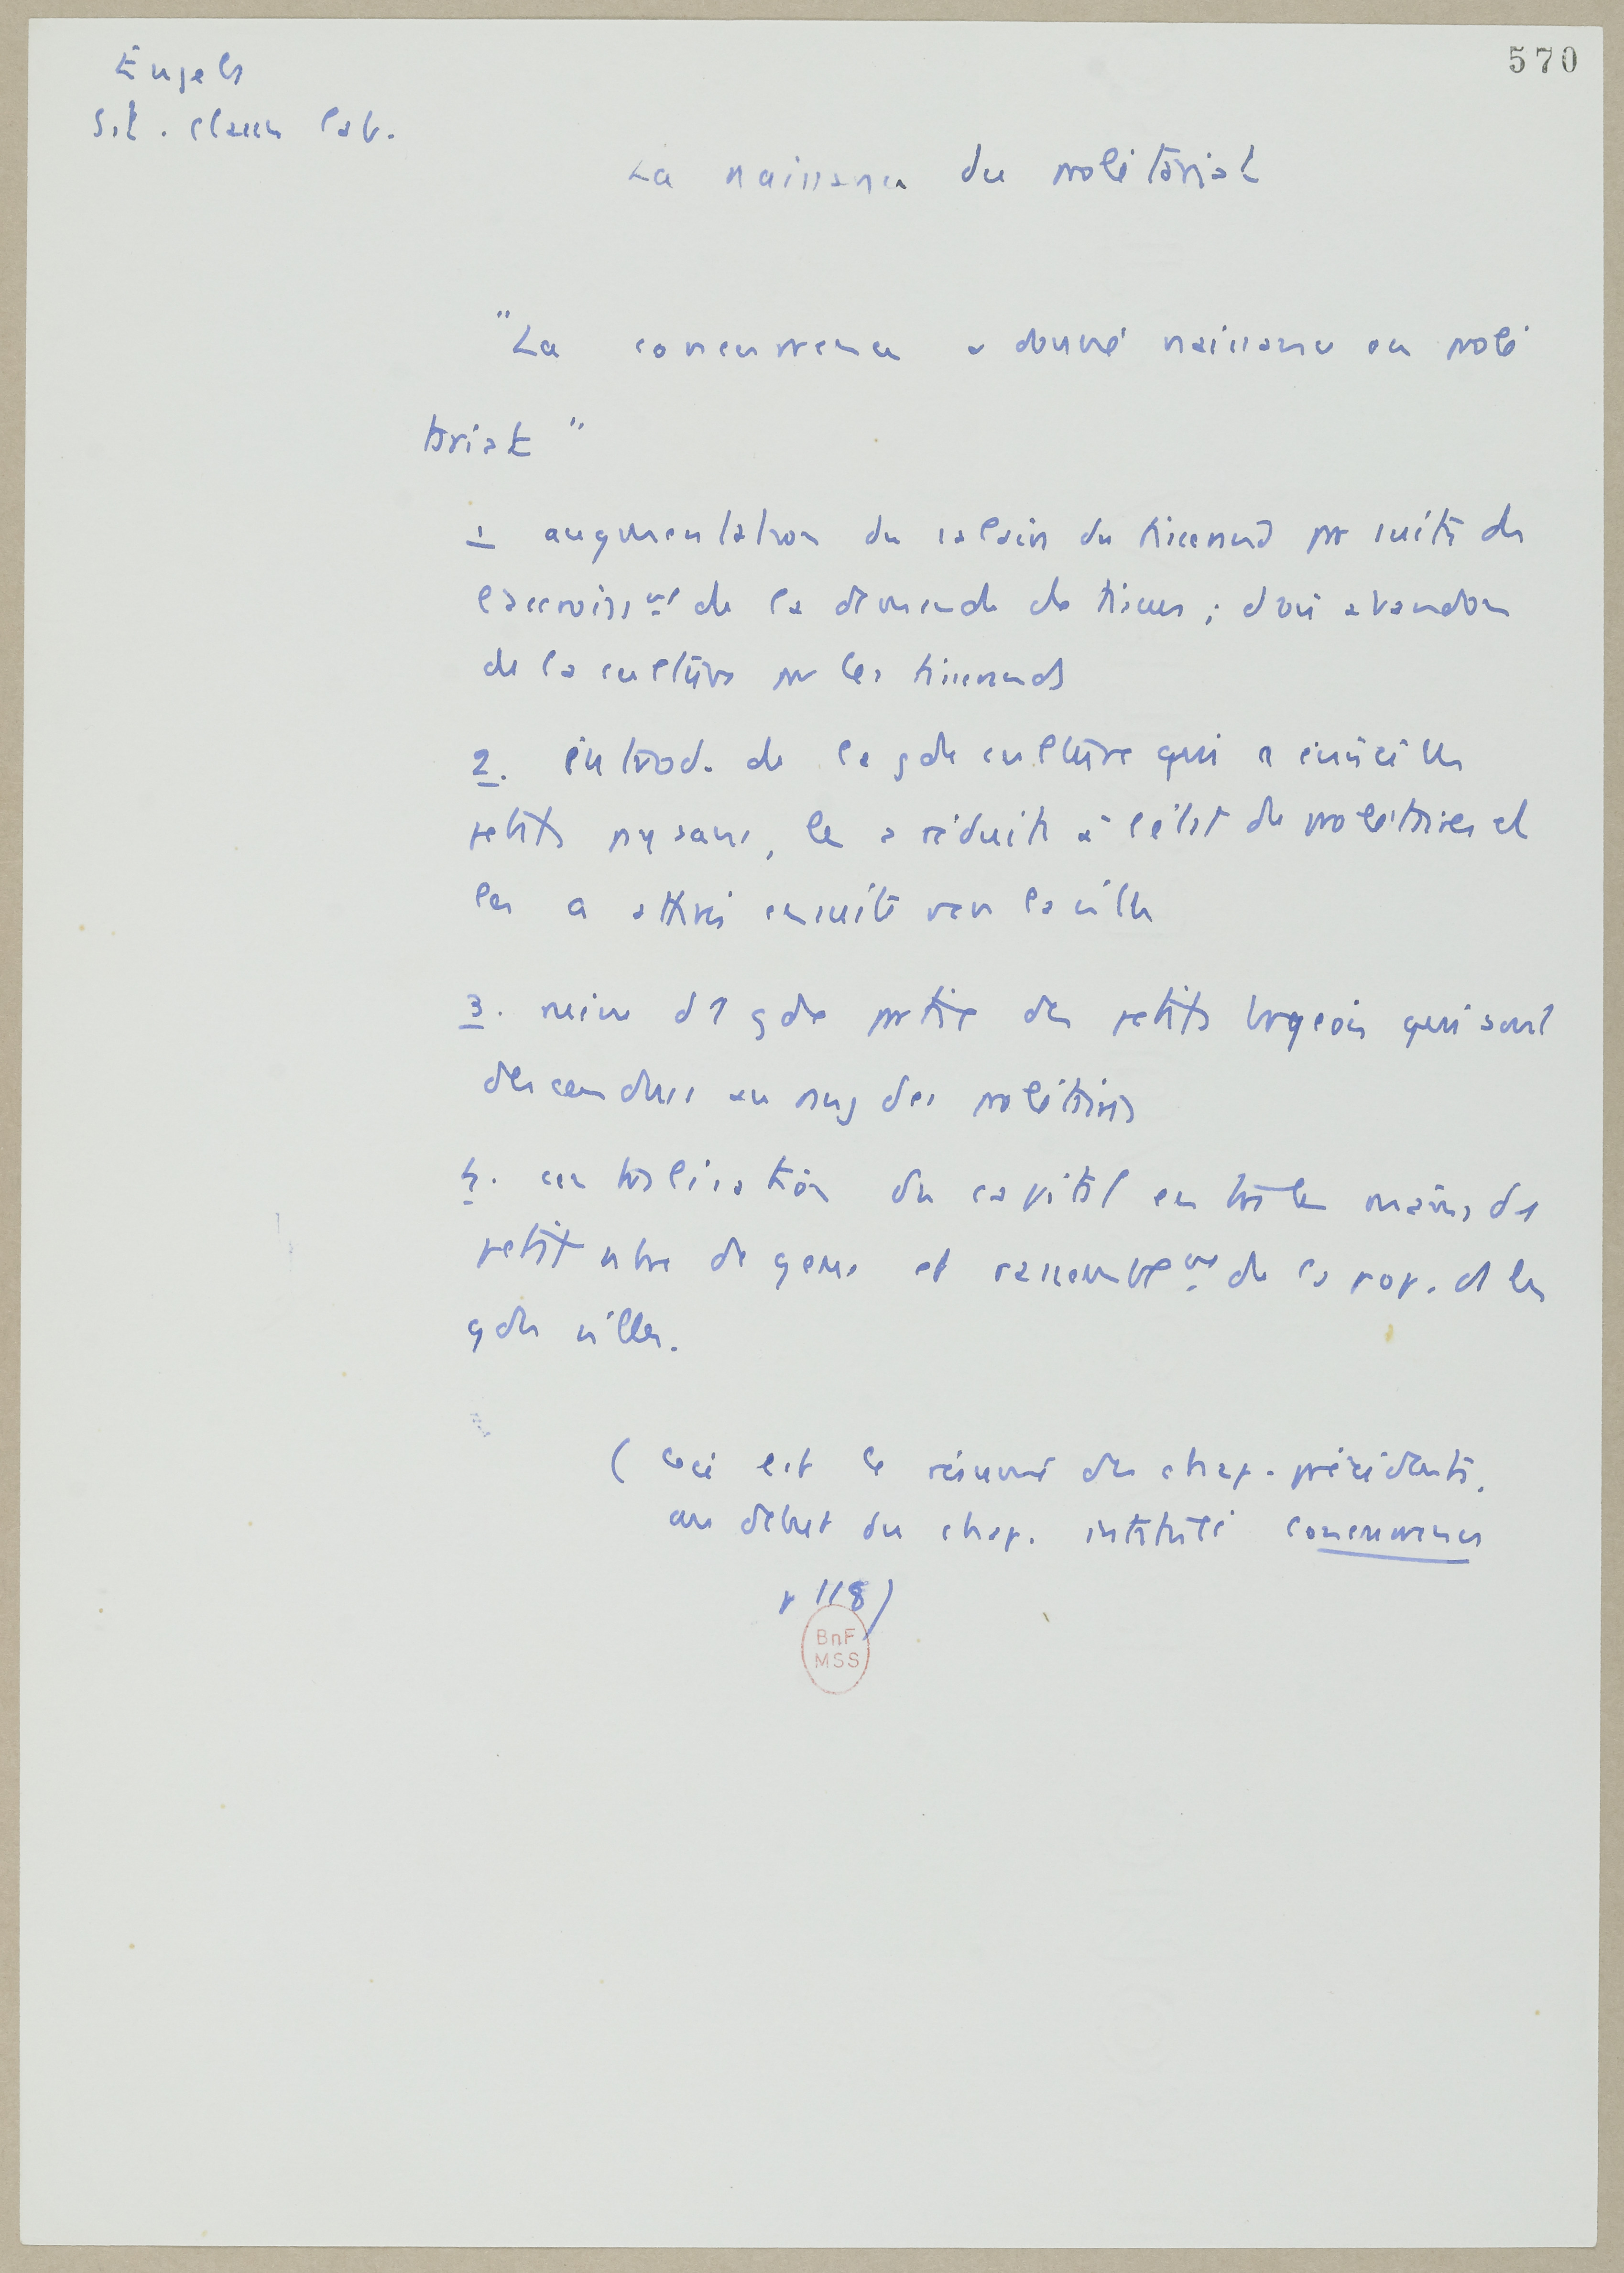 570
Engels
Sit. classe lab.
La naissance du prolétariat
"La concurrence a donné naissance au prolé
tariat"
1 augmentation du salaire du tisserand par suite de
l'accroissmt de la demande de tissus ; d'où abandon
de la culture par les tisserands
2. introd. de la gde culture qui a évincé les
petits paysans, les a réduits à l'état de prolétaires et
les a attirés ensuite vers la ville
3. ruine d'1 gde partie des petits bourgeois qui sont
descendus au rang des prolétaires
4. centralisation du capital entre les mains d'1
petit nbre de gens et rassemblemt de la pop. ds les
gdes villes.
(Ceci est le résumé des chap. précédents,
au début du chap. intitulé concurrence
p 118)
BnF
MSS